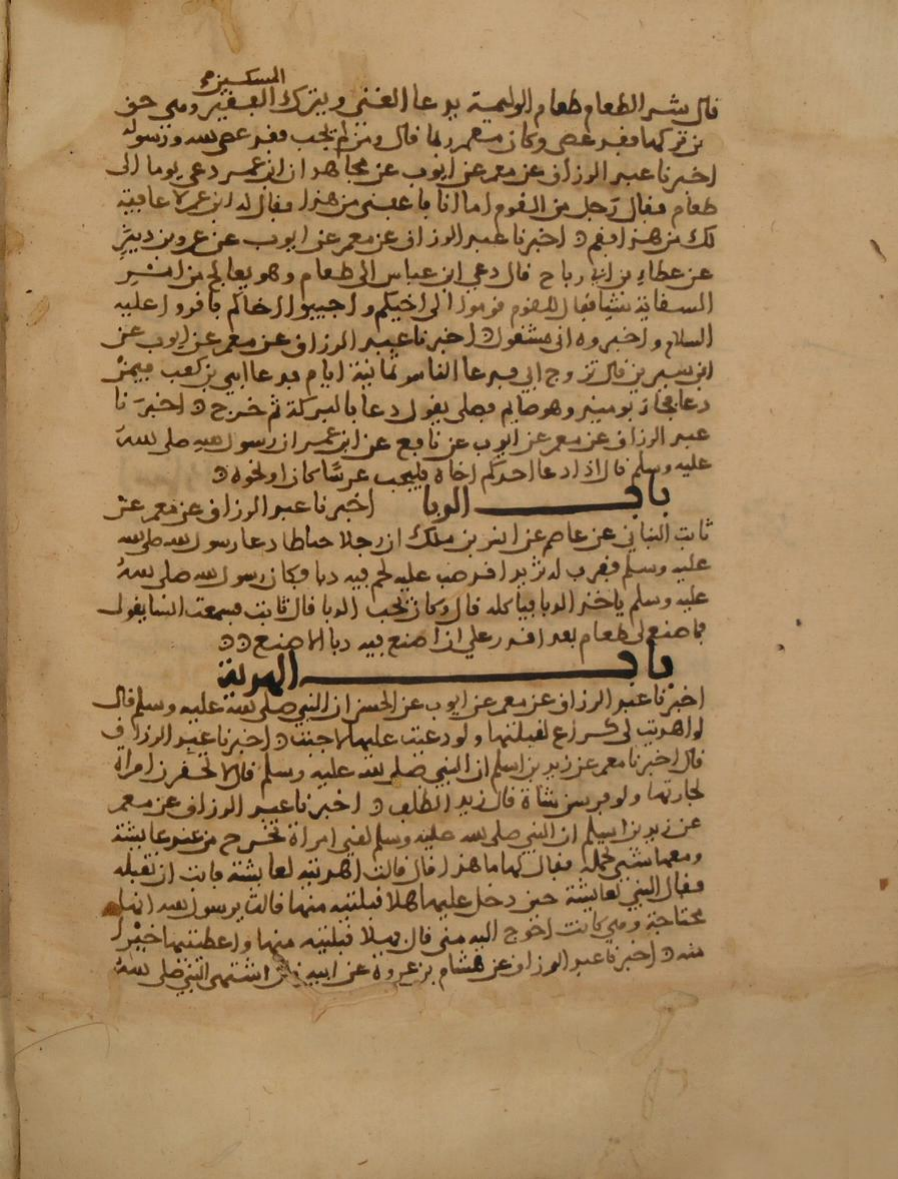 المسكين
قال شر الطعام طعام الوليمة يدعا الغني ويترك الفقير وهي حق
من تركها فقد عصى وكان معمر ربما قال ومن لم يجب فقد عصى الله ورسوله
اخبرنا عبد الرزاق عن معمر عن ايوب عن مجاهد ان ابن عمر دعي يوما الى
طعام فقال رجل من القوم اما انا فاعفني من هذا فقال له ابن عمر لا عافية
لك من هذا فقم اخبرنا عبد الرزاق عن معمر عن ايوب عن عمرو بن دينر
عن عطاء بن ابي رباح قال دعي ابن عباس الى طعام وهو يعالج من امر
السقاية شيا فقال للقوم قوموا الى اخيكم واجيبوا اخاكم فاقروا عليه
السلام واخبروه اني مشغول اخبرنا عبد الرزاق عن معمر عن ايوب عن
ابن سيرين قال تزوج ابي فدعا الناس ثمانية ايام فدعا ابي بن كعب فيمن
دعا فجا يومئذ وهو صايم فصلى يقول دعا بالبركة ثم خرج اخبرنا
عبد الرزاق عن معمر عن ايوب عن نافع عن ابن عمر ان رسول الله صلى الله
عليه وسلم قال اذا دعا احدكم اخاه فليجب عرسا كان او نحوه
باب الدبا اخبرنا عبد الرزاق عن معمر عن
ثابت البناني عن عاصم عن انس بن ملك ان رجلا خياطا دعا رسول الله صلى الله
عليه وسلم فقرب له ثريدا قد صب عليه لحم فيه دبا فكان رسول الله صلى الله
عليه وسلم ياخذ الدبا فياكله قال وكان يحب الدبا قال ثابت فسمعت انسا يقول
فما صنع لي طعام بعد اقدر على ان اصنع فيه دبا الا صنع
باب الهدية
اخبرنا عبد الرزاق عن معمر عن ايوب عن الحسن ان النبي صلى الله عليه وسلم قال
لو اهديت لي كراع لقبلتها ولو دعيت عليها لاجبت اخبرنا عبد الرزاق
قال اخبرنا معمر عن زيد بن اسلم ان النبي صلى الله عليه وسلم قال لا تحقرن امراة
لجارتها ولو فرسن شاة قال زيد الظلف اخبرنا عبد الرزاق عن معمر
عن زيد بن اسلم ان النبي صلى الله عليه وسلم لقي امراة تخرج من عند عايشة
ومعها شي تحمله فقال لها ما هذا قال قالت اهديته لعايشة فابت ان تقبله
فقال النبي لعايشة حين دخل عليها هلا قبلتيه منها قالت يرسول الله انها
محتاجة وهي كانت احوج اليه مني قال فهلا قبلتيه منها واعطيتيها خيرا
منه اخبرنا عبد الرزاق عن هشام بن عروة عن ابيه قال اشتهى النبي صلى الله